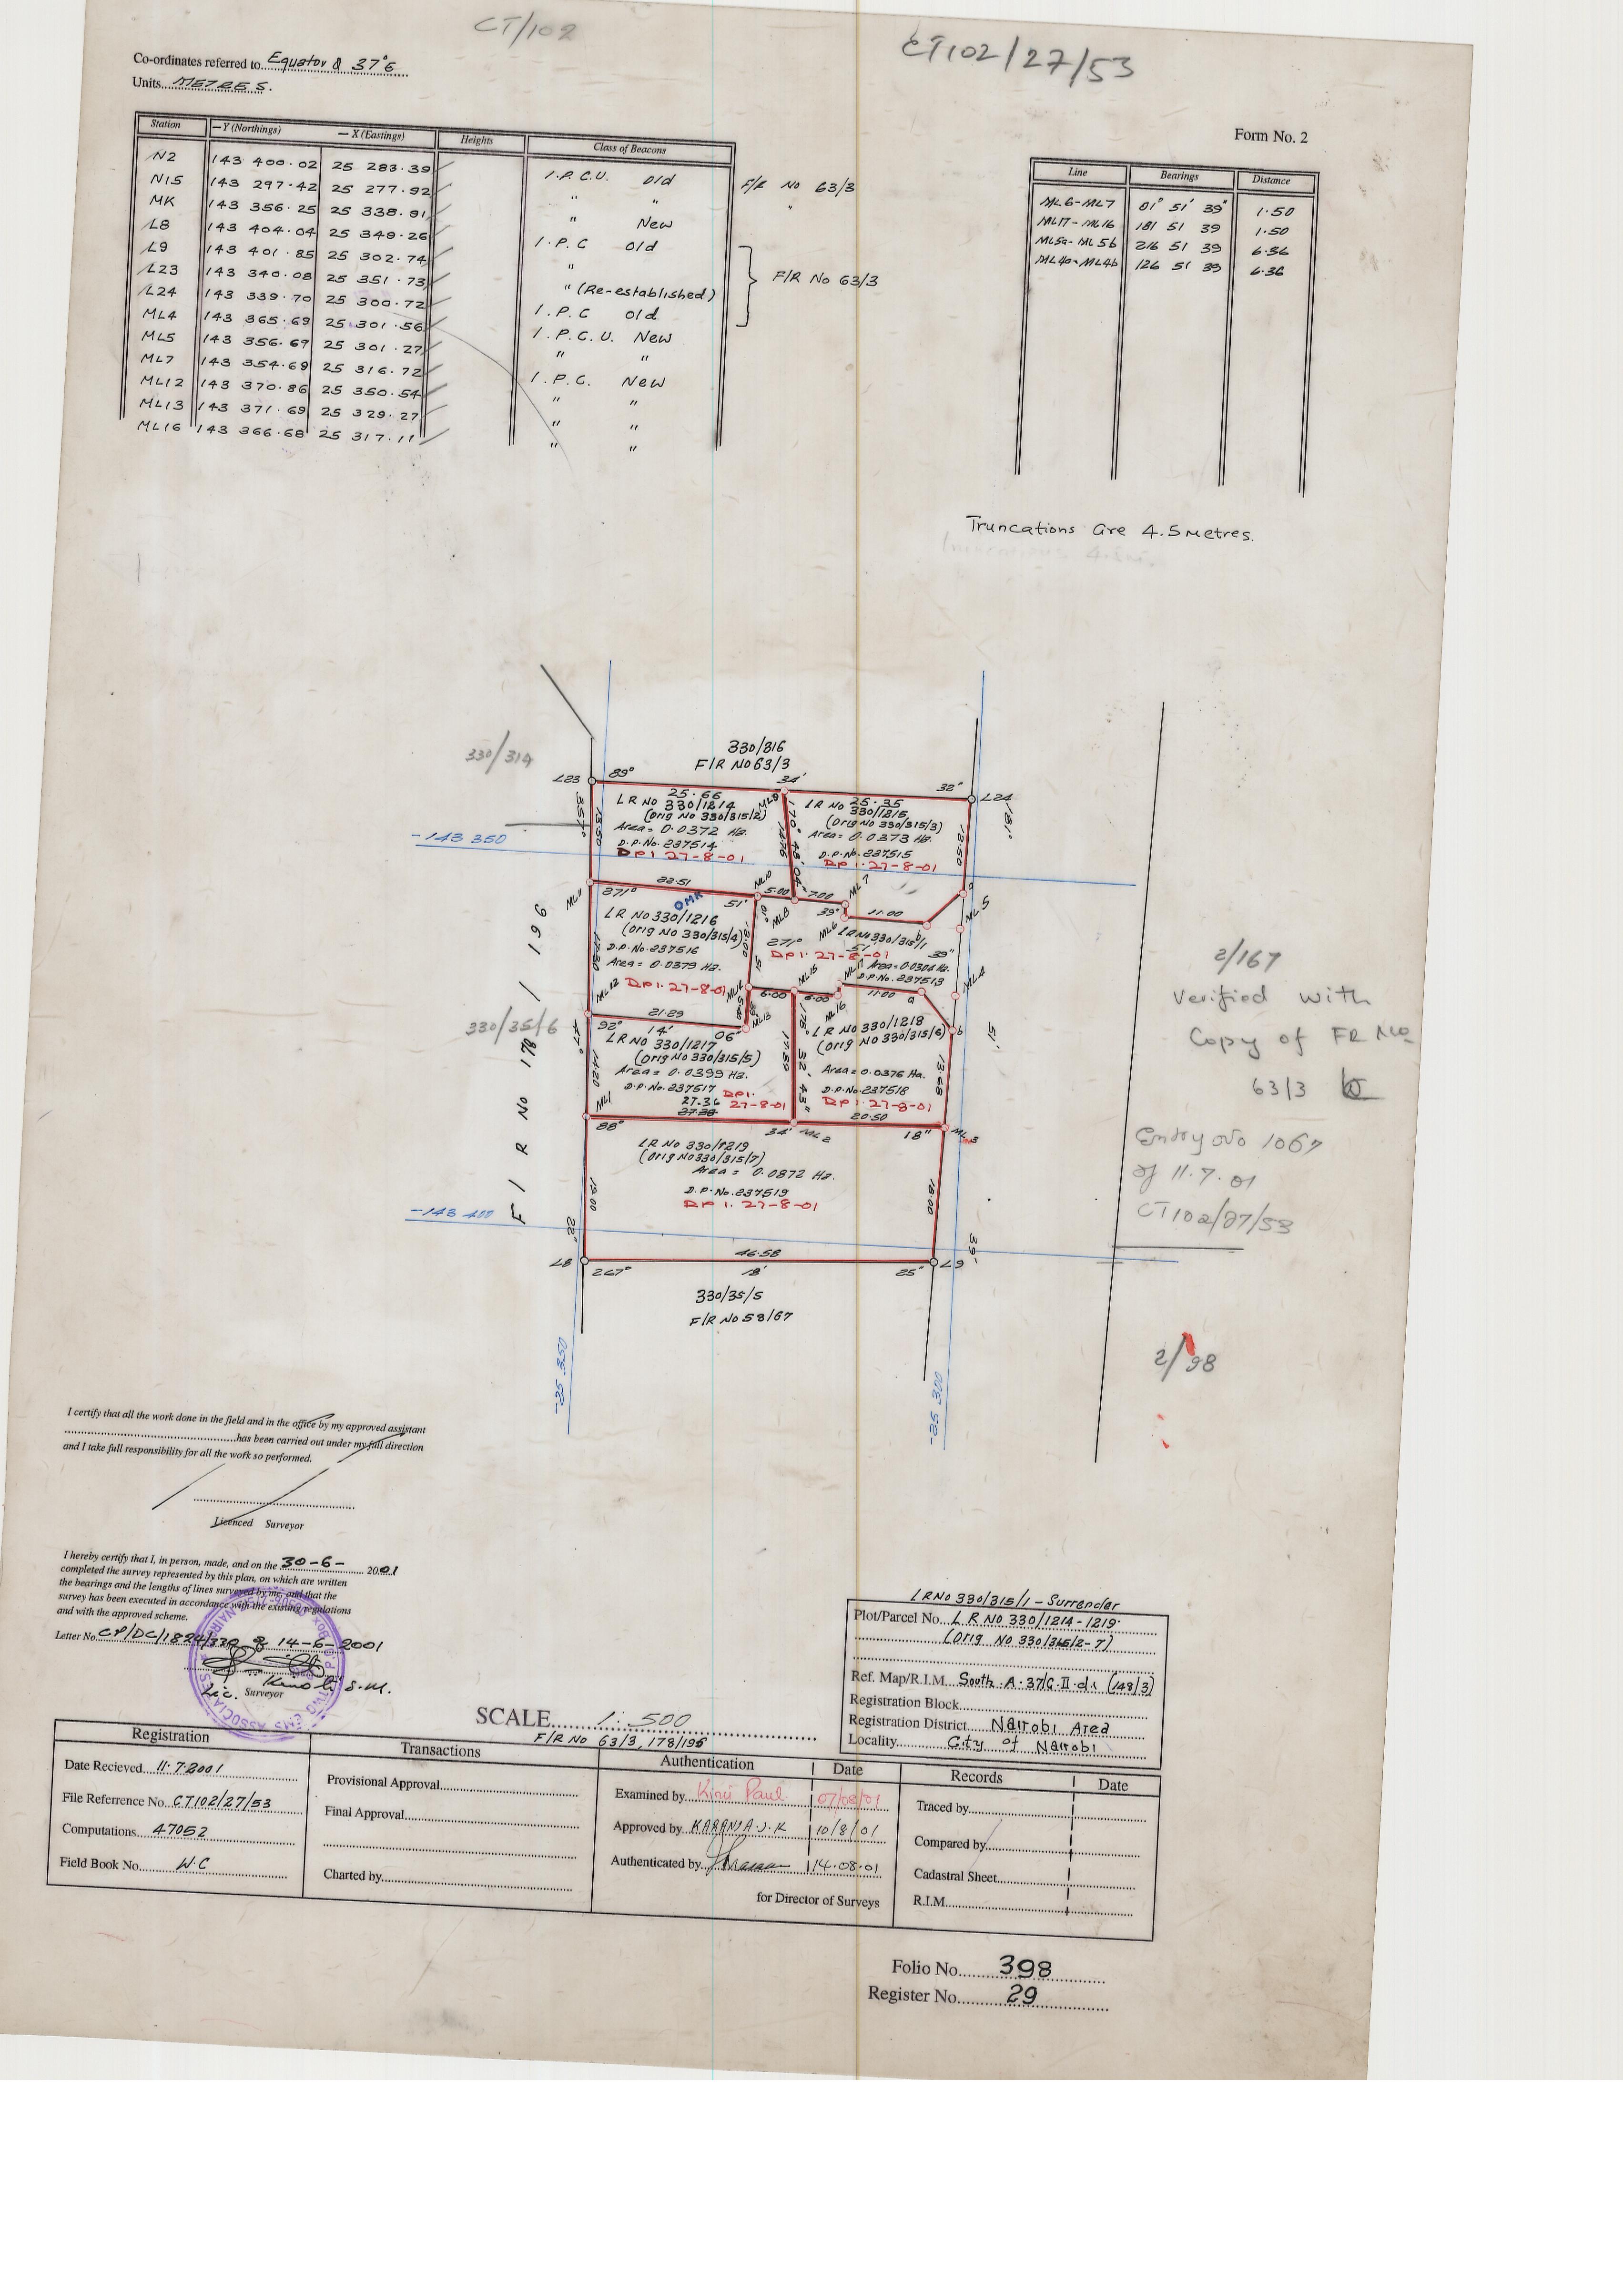 CT/102
CT102/27/53
Co-ordinates referred to Equator & 37°E
Units METRES.
Form No. 2
Station —Y (Northings) —X (Eastings) Heights Class of Beacons
N2 143 400.02 25 283.39 I.P.C.U. old
N15 143 297.42 25 277.92 " "
F/R No 63/3
"
MK 143 356.25 25 338.91 " New
L8 143 404.04 25 349.26 I.P.C old
L9 143 401.85 25 302.74 "
L23 143 340.08 25 351.73 " (Re-established)
L24 143 339.70 25 300.72 I.P.C old
F/R No 63/3
ML4 143 365.69 25 301.56 I.P.C.U. New
ML5 143 356.69 25 301.27 " "
ML7 143 354.69 25 316.72 I.P.C. New
ML12 143 370.86 25 350.54 " "
ML13 143 371.69 25 329.27 " "
ML16 143 366.68 25 317.11 " "
Line Bearings Distance
ML6-ML7 01° 51' 39" 1.50
ML17-ML16 181 51 39 1.50
ML5a-ML5b 216 51 39 6.36
ML4a-ML4b 126 51 39 6.36
Truncations are 4.5 metres.
330/314
330/316
F/R No 63/3
L23 89° 34' 32" L24
25.66
LR No 330/1214
(Orig No 330/315/2)
Area = 0.0372 Ha.
D.P.No. 237514
DP1 27-8-01
25.35
LR No 330/1215
(Orig No 330/315/3)
Area = 0.0373 Ha.
D.P.No. 237515
DP1. 27-8-01
357°
13.50
ML9
170°
12.50
181°
-143 350
ML11
22.51
271° 51'
ML10
5.00
7.00
ML7
39"
11.00
a
ML5
OMK
ML8
ML6
LR No 330/1216
(Orig No 330/315/4)
D.P.No. 237516
Area = 0.0379 Ha.
DP1. 27-8-01
LR No 330/315/1
271° 51' 39"
DP1. 27-8-01
Area = 0.0304 Ha.
D.P.No. 237513
ML4
ML12
21.29
92° 14' 06"
ML13
6.00
6.00
ML15
ML16
ML17
11.00
a
b
330/35/6
F/R No 178/196
47'
LR No 330/1217
(Orig No 330/315/5)
Area = 0.0399 Ha.
D.P.No. 237517
DP1.
27-8-01
27.36
14.20
178° 32' 43"
17.89
LR No 330/1218
(Orig No 330/315/6)
Area = 0.0376 Ha.
D.P.No. 237518
DP1. 27-8-01
13.68
51'
20.50
ML1
88° 34' 18"
ML2
ML3
LR No 330/1219
(Orig No 330/315/7)
Area = 0.0872 Ha.
D.P.No. 237519
DP1. 27-8-01
19.00
18.00
22"
39"
-143 400
46.58
L8 267° 18' 25" L9
330/35/5
F/R No 58/67
-25 350
-25 300
2/167
Verified with
Copy of FR No
63/3
Entry No 1067
of 11.7.01
CT102/27/53
2/98
I certify that all the work done in the field and in the office by my approved assistant
has been carried out under my full direction
and I take full responsibility for all the work so performed.
Licenced Surveyor
I hereby certify that I, in person, made, and on the 30-6- 2001
completed the survey represented by this plan, on which are written
the bearings and the lengths of lines surveyed by me, and that the
survey has been executed in accordance with the existing regulations
and with the approved scheme.
Letter No. CP/DC/1824/339 of 14-6-2001
Lic. Surveyor
LR No 330/315/1 - Surrender
Plot/Parcel No. L.R No 330/1214-1219
(Orig No 330/315/2-7)
Ref. Map/R.I.M. South.A.37/G.II.d.1 (148/3)
Registration Block
Registration District Nairobi Area
Locality City of Nairobi
SCALE 1:500
F/R No 63/3, 178/196
Registration
Date Recieved 11.7.2001
File Referrence No. CT102/27/53
Computations 47052
Field Book No. W.C
Transactions
Provisional Approval
Final Approval
Charted by
Authentication Date
Examined by Kinii Paul 07/08/01
Approved by KARANJA.J.K 10/8/01
Authenticated by 14.08.01
for Director of Surveys
Records Date
Traced by
Compared by
Cadastral Sheet
R.I.M.
Folio No. 398
Register No. 29